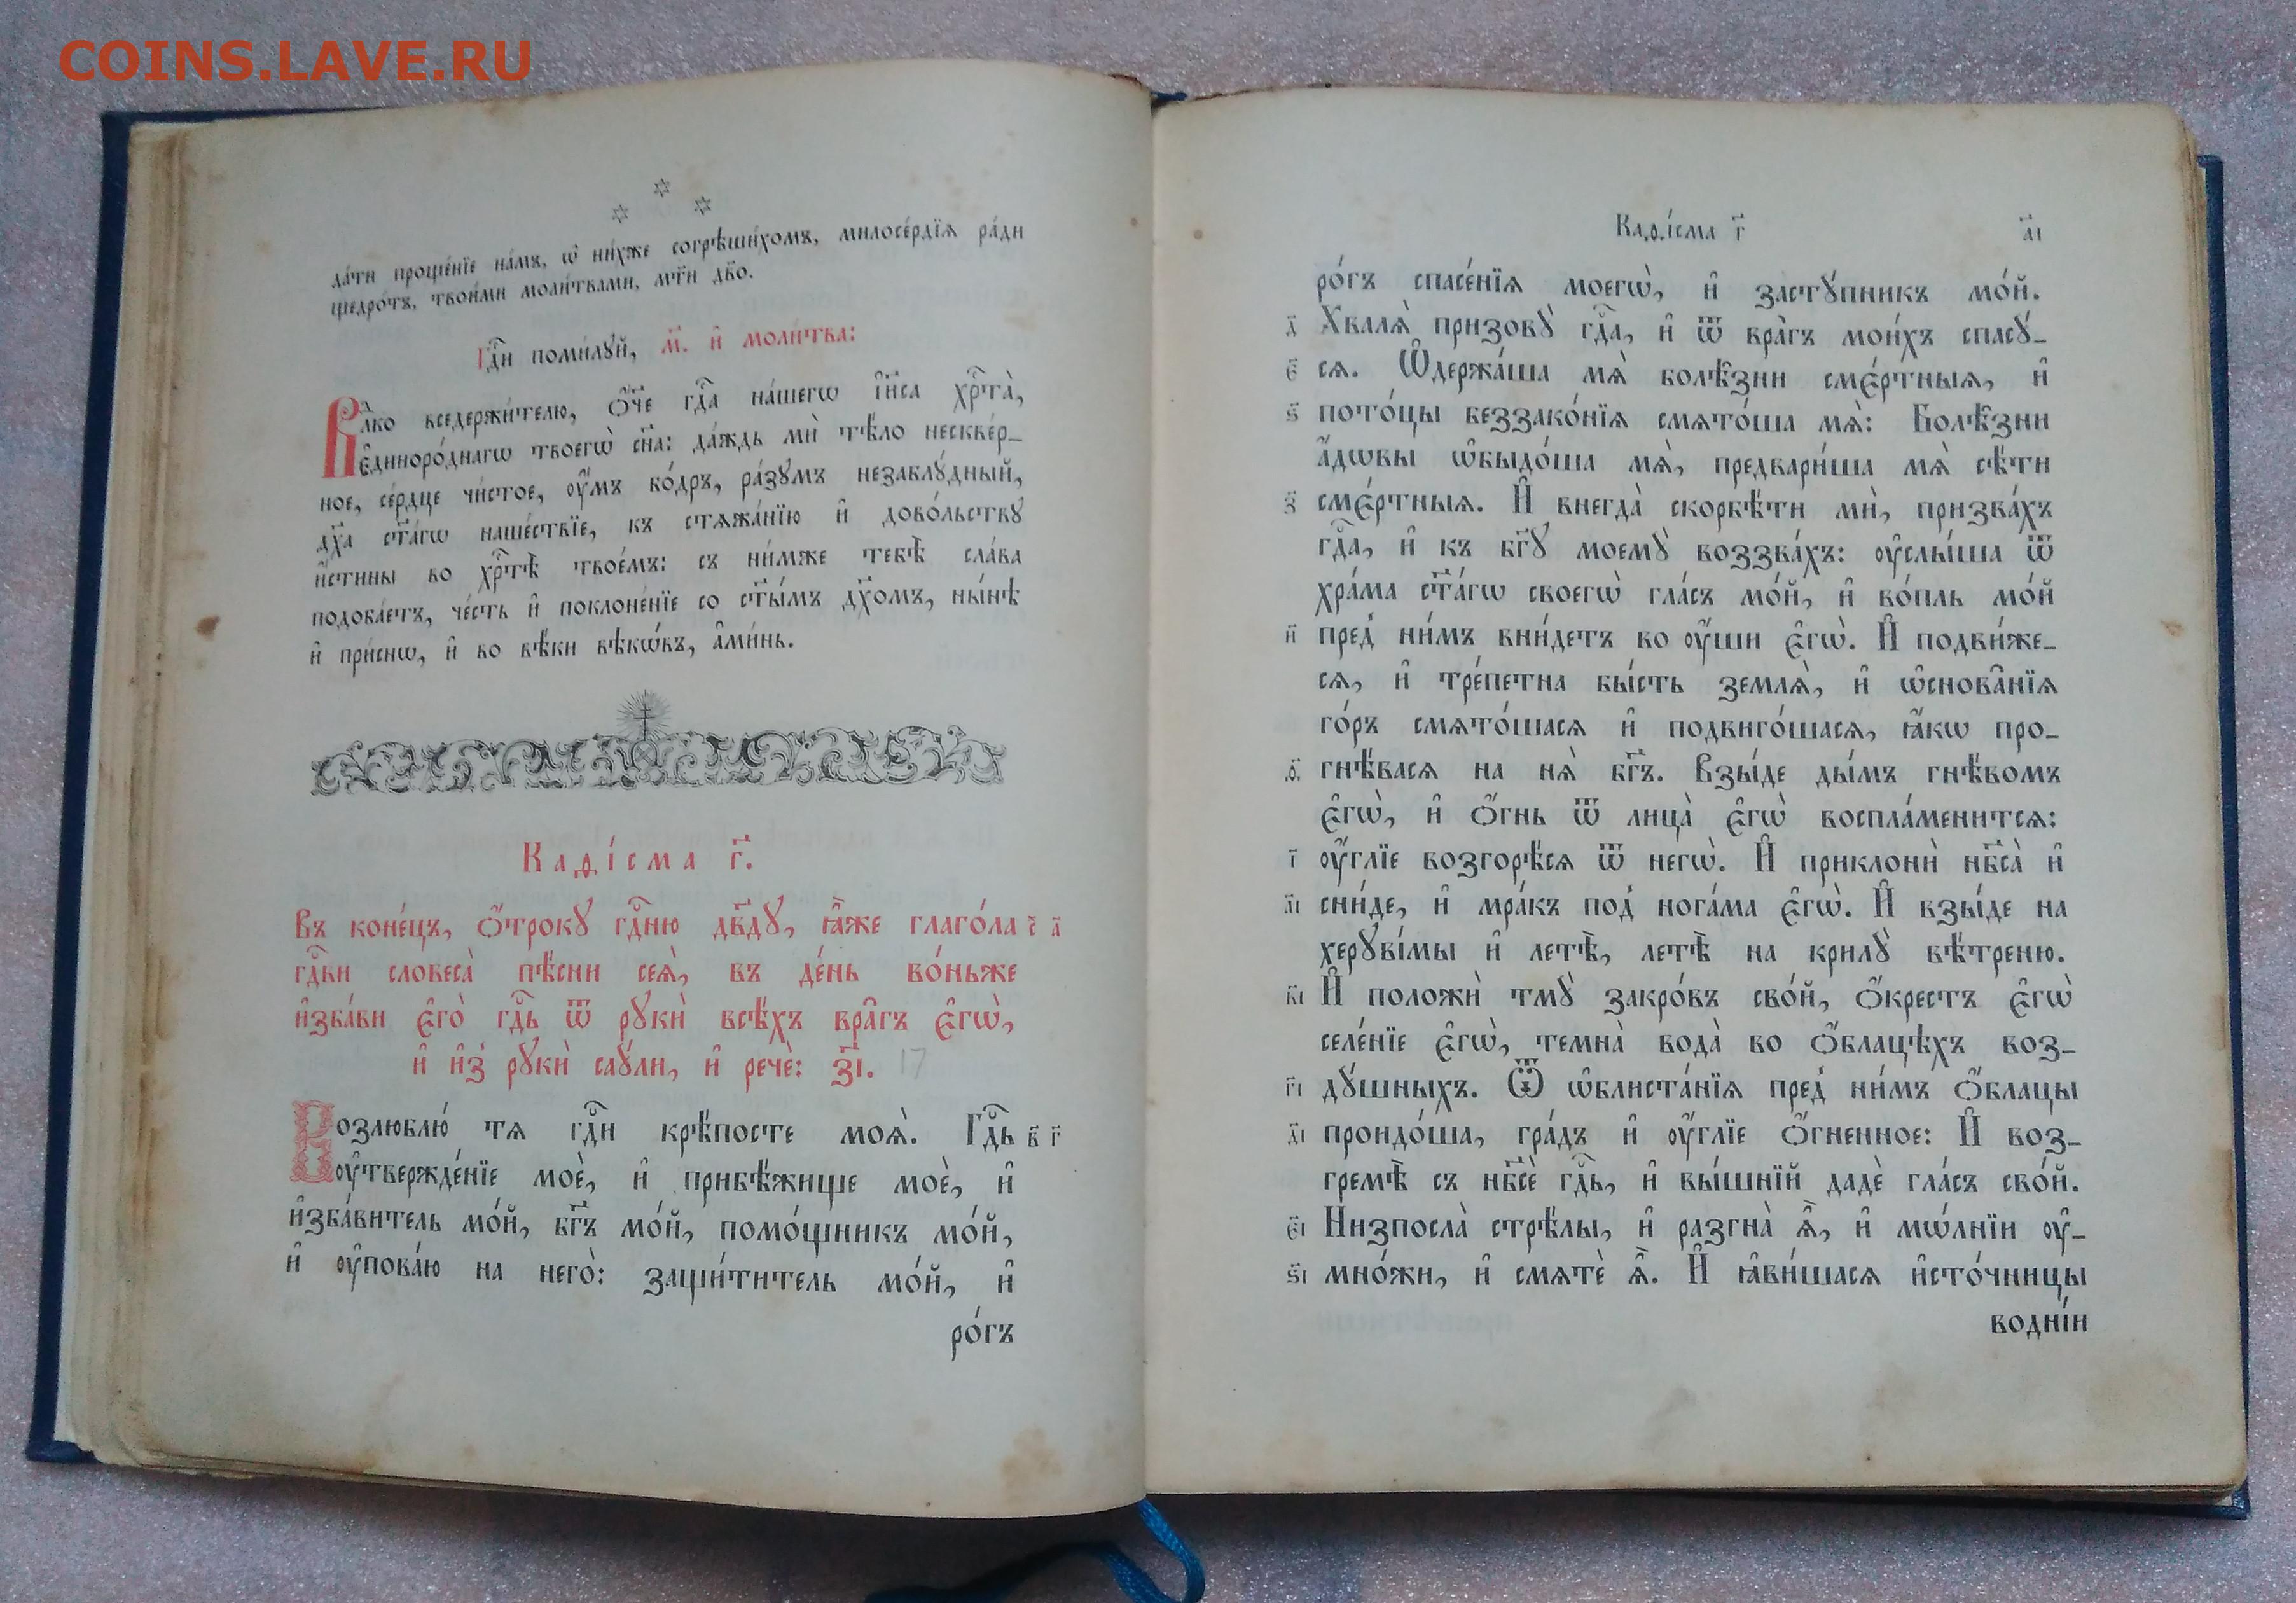 COINS.LAVE.RU
да́ти проще́нїе на́мъ, ѡ҆ ни́хже согрѣши́хомъ, милосе́рдїѧ ра́ди
щедро́тъ, твои́ми моли́твами, мт҃и дв҃о.
Гдⷭ҇и поми́лꙋй, м҃. и҆ моли́тва:
Влⷣко вседержи́телю, ѻ҆́ч҃е гдⷭ҇а на́шегѡ і҆и҃са хрⷭ҇та̀,
є҆диноро́днагѡ твоегѡ̀ сн҃а: да́ждь мѝ тѣ́ло нескве́р_
ное, се́рдце чи́стое, ᲂу҆́мъ бо́дръ, ра́зꙋмъ незаблꙋ́дный,
дх҃а ст҃а́гѡ наше́ствїе, къ стѧжа́нїю и҆ дово́льствꙋ
и҆́стины во хрⷭ҇тѣ̀ твое́мъ: съ ни́мже тебѣ̀ сла́ва
подоба́етъ, че́сть и҆ поклоне́нїе со ст҃ы́мъ дх҃омъ, ны́нѣ
и҆ при́снѡ, и҆ во вѣ́ки вѣкѡ́въ, а҆ми́нь.
Каѳі́сма г҃.
Въ коне́цъ, ѻ҆́трокꙋ гдⷭ҇ню дв҃дꙋ, ꙗ҆̀же глаго́ла с҃ а҃
гдⷭ҇ви словеса̀ пѣ́сни сеѧ̀, въ де́нь во́ньже
и҆зба́ви є҆го̀ гдⷭ҇ь ѿ рꙋкѝ всѣ́хъ вра̑гъ є҆гѡ̀,
и҆ и҆з̾ рꙋкѝ саꙋ́ли, и҆ речѐ: з҃і. 17
Возлюблю́ тѧ гдⷭ҇и крѣ́посте моѧ̀. Гдⷭ҇ь в҃ г҃
ᲂу҆твержде́нїе моѐ, и҆ прибѣ́жище моѐ, и҆
и҆зба́витель мо́й, бг҃ъ мо́й, помо́щникъ мо́й,
и҆ ᲂу҆пова́ю на него̀: защи́титель мо́й, и҆
ро́гъ
Каѳі́сма г҃ а҃і
ро́гъ спасе́нїѧ моегѡ̀, и҆ застꙋ́пникъ мо́й.
д҃ Хвалѧ̀ призовꙋ̀ гдⷭ҇а, и҆ ѿ вра̑гъ мои́хъ спасꙋ́_
є҃ сѧ. Ѡ҆держа́ша мѧ̀ бѡлѣ́зни сме́ртныѧ, и҆
ѕ҃ пото́цы беззако́нїѧ смѧто́ша мѧ̀: Бѡлѣ́зни
а҆́дѡвы ѡ҆быдо́ша мѧ̀, предвари́ша мѧ̀ сѣ̑ти
з҃ сме́ртныѧ. И҆ внегда̀ скорбѣ́ти мѝ, призва́хъ
гдⷭ҇а, и҆ къ бг҃ꙋ моемꙋ̀ воззва́хъ: ᲂу҆слы́ша ѿ
хра́ма ст҃а́гѡ своегѡ̀ гла́съ мо́й, и҆ во́пль мо́й
и҃ пред̾ ни́мъ вни́детъ во ᲂу҆́ши є҆гѡ̀. И҆ подви́же_
сѧ, и҆ тре́петна бы́сть землѧ̀, и҆ ѡ҆снова̑нїѧ
го́ръ смѧто́шасѧ и҆ подвиго́шасѧ, ꙗ҆́кѡ про_
ѳ҃ гнѣ́васѧ на нѧ̀ бг҃ъ. Взы́де ды́мъ гнѣ́вомъ
є҆гѡ̀, и҆ ѻ҆́гнь ѿ лица̀ є҆гѡ̀ воспла́менитсѧ:
і҃ ᲂу҆́глїе возгорѣ́сѧ ѿ негѡ̀. И҆ приклонѝ нб҃са̀ и҆
а҃і сни́де, и҆ мра́къ под̾ нога́ма є҆гѡ̀. И҆ взы́де на
херꙋві́мы и҆ летѣ̀, летѣ̀ на крилꙋ̀ вѣ́треню.
в҃і И҆ положѝ тмꙋ̀ закро́въ сво́й, ѻ҆́крестъ є҆гѡ̀
селе́нїе є҆гѡ̀, темна̀ вода̀ во ѻ҆́блацѣхъ воз_
г҃і дꙋ́шныхъ. Ѿ ѡ҆блиста́нїѧ пред̾ ни́мъ ѻ҆́блацы
д҃і проидо́ша, гра́дъ и҆ ᲂу҆́глїе ѻ҆́гненное: И҆ воз_
гремѣ̀ съ нб҃сѐ гдⷭ҇ь, и҆ вы́шнїй дадѐ гла́съ сво́й.
є҃і Низпосла̀ стрѣ́лы, и҆ разгна̀ ѧ҆̀, и҆ мѡ́лнїи ᲂу҆_
ѕ҃і мно́жи, и҆ смѧтѐ ѧ҆̀. И҆ ꙗ҆ви́шасѧ и҆сто́чницы
водні́и